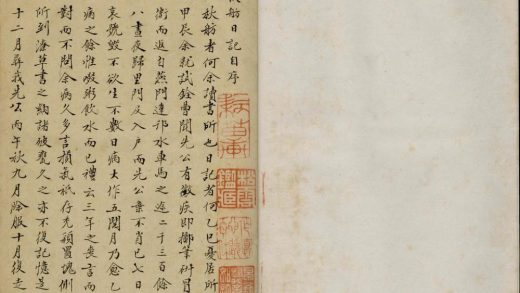 秋舫日記自序
秋舫者何余讀書所也日記者何乙巳憂居所
甲辰余就試銓曹聞先公有微疾即擲筆硏冒
衝而返自燕門達邗水車馬之迹二千三百餘
八晝夜歸里門及入戶而先公棄不肖已七日
哀號毀不欲生不數日病大作五閱月乃愈乙
病之餘唯啜粥飲水而已禮云三年之喪言而
對而不問余病久多言損氣祗存禿穎置塊側
所到潦草書之
久之亦不復記憶是
十二月葬我先公丙午秋九月除服十月復走